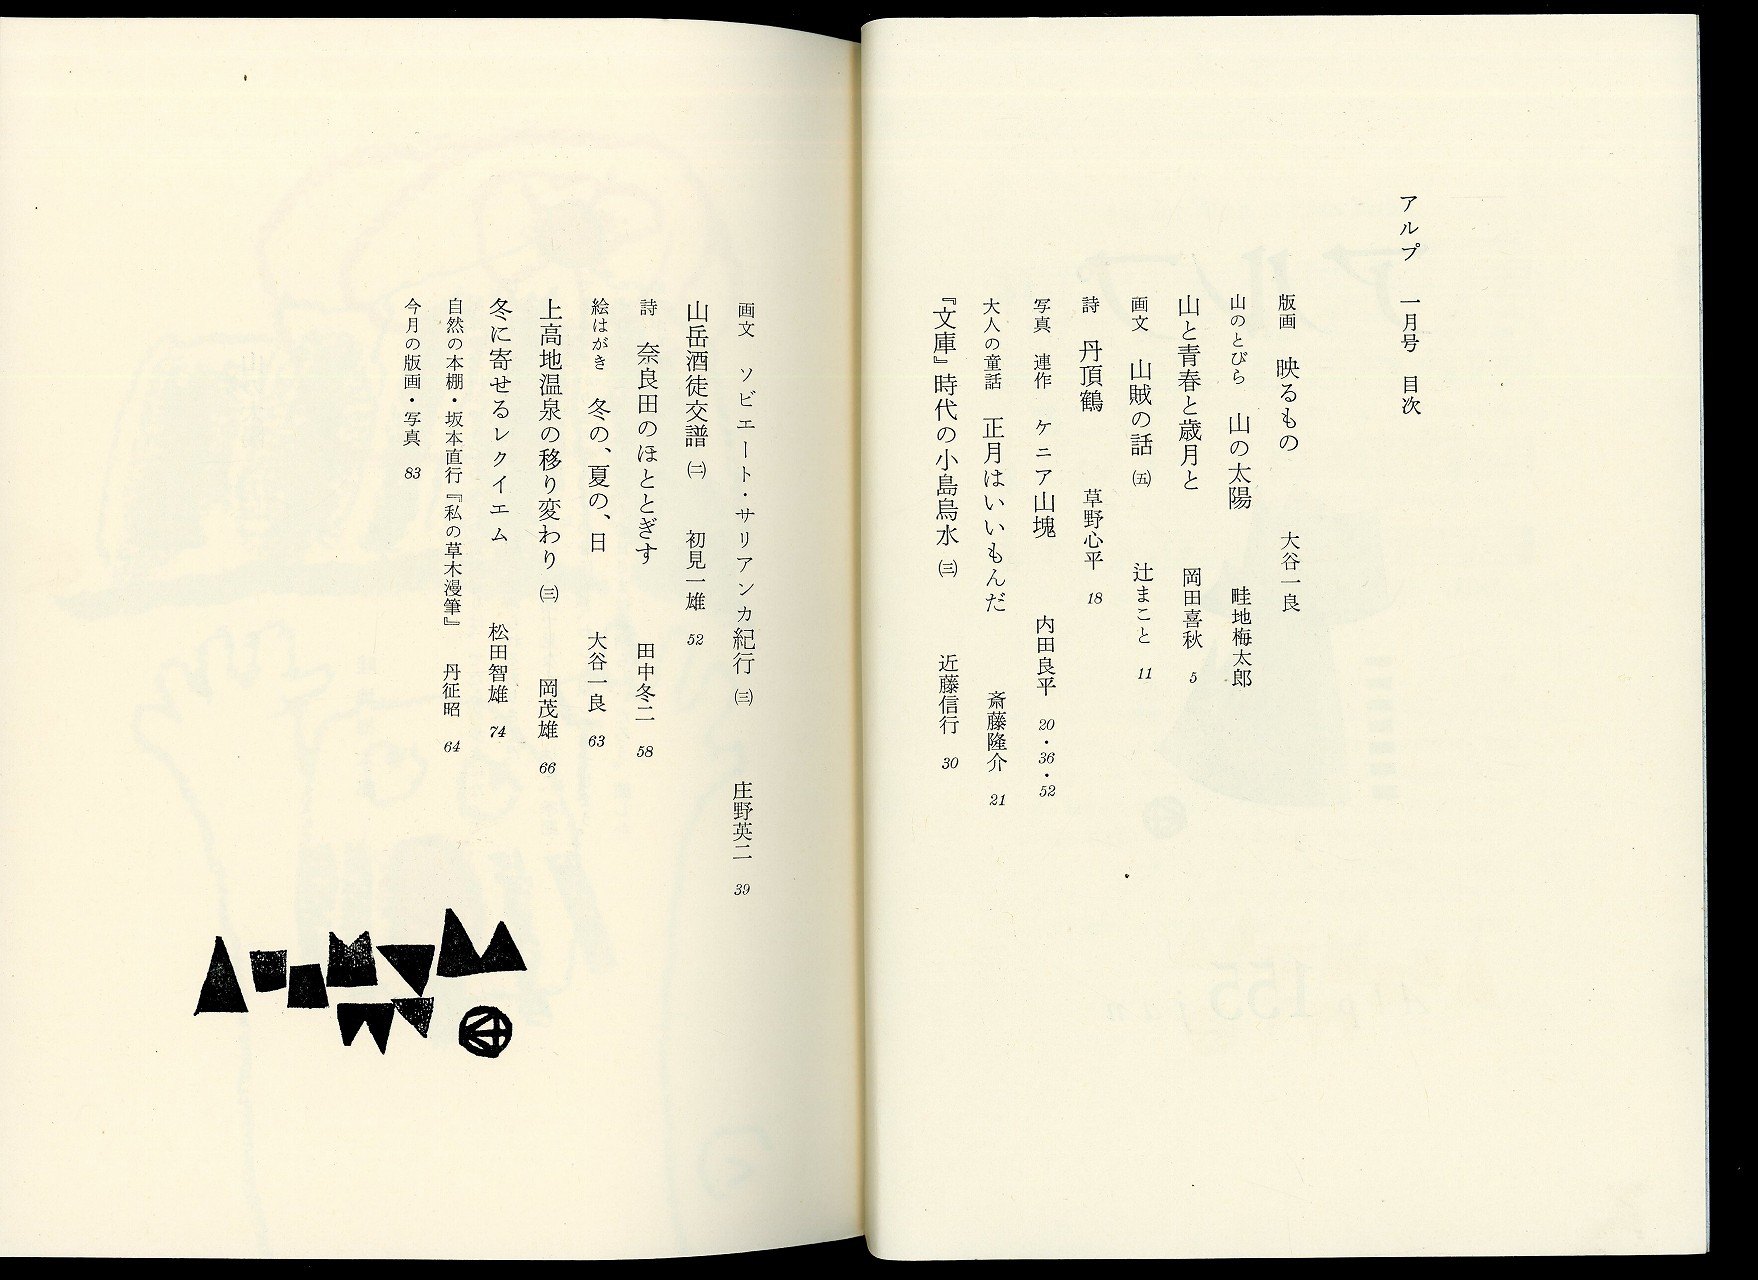 アルプ 一月号 目次
版画 映るもの 大谷一良
山のとびら 山の太陽 畦地梅太郎
山と青春と歳月と 岡田喜秋 5
画文 山賊の話 ㈤ 辻まこと 11
詩 丹頂鶴 草野心平 18
写真 連作 ケニア山塊 内田良平 20・36・52
大人の童話 正月はいいもんだ 斎藤隆介 21
『文庫』時代の小島烏水 ㈢ 近藤信行 30
画文 ソビエート・サリアンカ紀行 ㈢ 庄野英二 39
山岳酒徒交譜 ㈡ 初見一雄 52
詩 奈良田のほととぎす 田中冬二 58
絵はがき 冬の、夏の、日 大谷一良 63
上高地温泉の移り変わり ㈢ 岡茂雄 66
冬に寄せるレクイエム 松田智雄 74
自然の本棚・坂本直行『私の草木漫筆』 丹征昭 64
今月の版画・写真 83